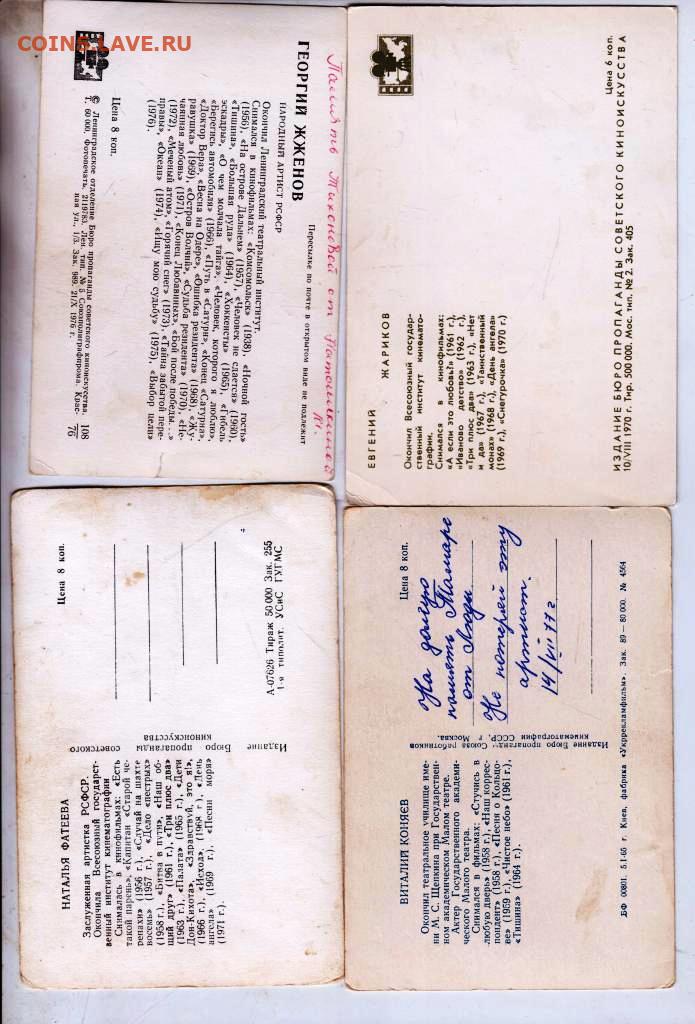 COINS.LAVE.RU
ГЕОРГИЙ ЖЖЕНОВ
НАРОДНЫЙ АРТИСТ РСФСР
Окончил Ленинградский театральный институт.
Снимался в кинофильмах: «Комсомольск» (1938), «Ночной гость»
(1956), «На острове Дальнем» (1957), «Человек не сдается» (1960),
«Тишина», «Большая руда» (1964), «Хоккеисты» (1965), «Гибель
эскадры», «О чем молчала тайга», «Человек, которого я люблю»,
«Берегись автомобиля» (1966), «Путь в «Сатурн», «Конец «Сатурна»,
«Доктор Вера», «Весна на Одере», «Ошибка резидента» (1968), «Жу-
равушка» (1969), «Остров Волчий», «Судьба резидента» (1970), «Не-
чаянная любовь» (1971), «Конец Любавиных», «Бой после победы...»
(1972), «Меченый атом», «Горячий снег» (1973), «Тайна забытой пере-
правы», «Океан» (1974), «Ищу мою судьбу» (1975), «Выбор цели»
(1976).
Пересылке по почте в открытом виде не подлежит
Цена 8 коп.
© Ленинградское отделение Бюро пропаганды советского киноискусства.
Т. 60 000. Фотопечать. 2119783. Лен. тип. № 5 Союзполиграфпрома. Крас-
ная ул., 1/3. Зак. 989. 21/X 1976 г.
108
76
Память Тихоновой от
ЕВГЕНИЙ ЖАРИКОВ
Окончил Всесоюзный государ-
ственный институт кинемато-
графии.
Снимался в кинофильмах:
«А если это любовь?» (1961 г.),
«Иваново детство» (1962 г.),
«Три плюс два» (1963 г.), «Нет
и да» (1967 г.), «Таинственный
монах» (1968 г.), «День ангела»
(1969 г.), «Снегурочка» (1970 г.)
Цена 6 коп.
ИЗДАНИЕ БЮРО ПРОПАГАНДЫ СОВЕТСКОГО КИНОИСКУССТВА
10/VIII 1970 г. Тир. 500 000. Мос. тип. № 2. Зак. 405
НАТАЛЬЯ ФАТЕЕВА
Заслуженная артистка РСФСР.
Окончила Всесоюзный государст-
венный институт кинематографии
Снималась в кинофильмах: «Есть
такой парень», «Капитан «Старой че-
репахи» (1956 г.), «Случай на шахте
восемь» (1957 г.), «Дело «пестрых»
(1958 г.), «Битва в пути», «Наш об-
щий друг» (1961 г.), «Три плюс два»
(1963 г.), «Палата» (1965 г.), «Дети
Дон-Кихота», «Здравствуй, это я!»,
(1966 г.), «Исход», (1968 г.), «День
ангела» (1969 г.), «Песни моря»
(1971 г.)
Издание Бюро пропаганды советского
киноискусства
Цена 8 коп.
А-07626 Тираж 50 000 Зак. 255
1-я типолит. УСиС ГУГМС
ВИТАЛИЙ КОНЯЕВ
Окончил театральное училище име-
ни М. С. Щепкина при Государствен-
ном академическом Малом театре.
Актер Государственного академи-
ческого Малого театра.
Снимался в фильмах: «Стучись в
любую дверь» (1958 г.), «Наш коррес-
пондент» (1958 г.), «Песня о Кольцо-
ве» (1959 г.), «Чистое небо» (1961 г.),
«Тишина» (1964 г.).
Издание Бюро пропаганды Союза работников
кинематографии СССР, г Москва.
Цена 8 коп.
На долгую
память Тамаре
от Люды
Не потеряй эту
артист.
14/VIII 77 г
БФ 00801. 5.I-65 г. Киев, фабрика «Укррекламфильм». Зак. 89—80 000. № 4564